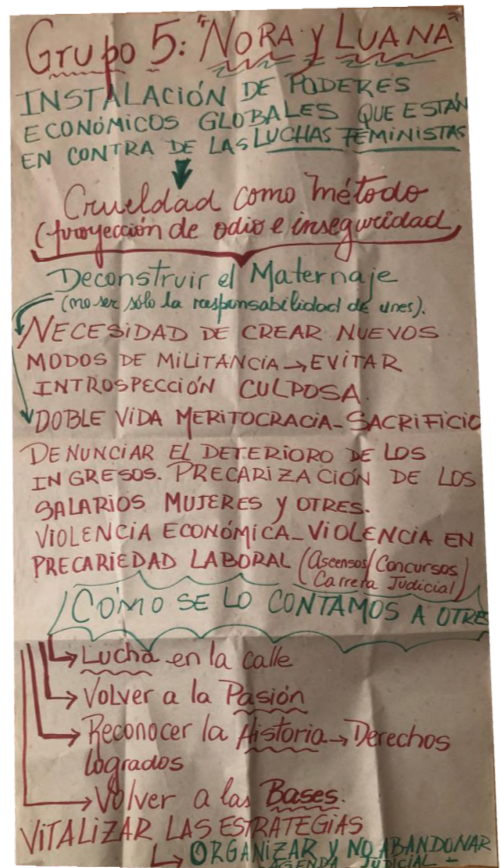 Grupo 5: "NORA y LUANA"
INSTALACIÓN DE PODERES
ECONÓMICOS GLOBALES QUE ESTÁN
EN CONTRA DE LAS LUCHAS FEMINISTAS
Crueldad como método
(proyección de odio e inseguridad)
Deconstruir el Maternaje
(no ser sólo la responsabilidad de unes).
NECESIDAD DE CREAR NUEVOS
MODOS DE MILITANCIA → EVITAR
INTROSPECCIÓN CULPOSA.
DOBLE VIDA MERITOCRACIA - SACRIFICIO
DENUNCIAR EL DETERIORO DE LOS
INGRESOS. PRECARIZACIÓN DE LOS
SALARIOS MUJERES Y OTRES.
VIOLENCIA ECONÓMICA - VIOLENCIA EN
PRECARIEDAD LABORAL (Ascensos/Concursos/
Carrera Judicial)
¿COMO SE LO CONTAMOS A OTRES
→ Lucha en la calle
→ Volver a la Pasión
→ Reconocer la Historia → Derechos
logrados
→ Volver a las Bases.
VITALIZAR LAS ESTRATEGIAS
→ ORGANIZAR Y NO ABANDONAR
AGENDA JUDICIAL -